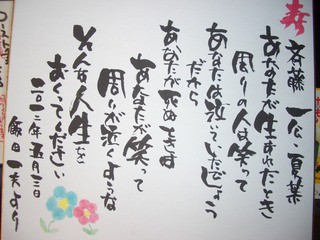 寿
斉藤 一公・夏葉
あなたが生まれたとき
周りの人は笑って
あなたは泣いていたでしょう
だから
あなたが死ぬときは
あなたが笑って
周りが泣くような
そんな人生を
おくってください
二〇一二年五月三日
飯田一夫より